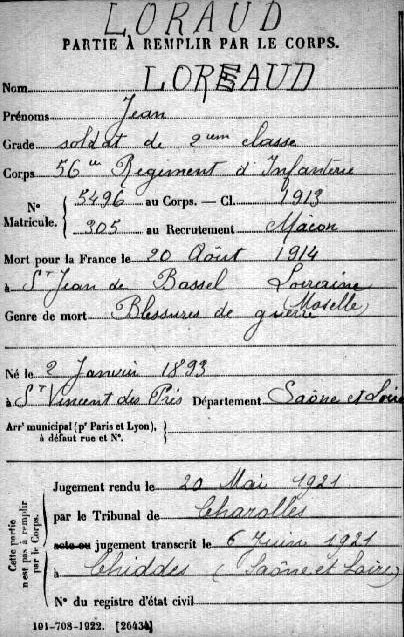 LORAUD
PARTIE À REMPLIR PAR LE CORPS.
Nom LORAUD
Prénoms Jean
Grade soldat de 2em classe
Corps 56me Regiment d'Infanterie
No Matricule. { 5496 au Corps. — Cl. 1913
305 au Recrutement Mâcon
Mort pour la France le 20 Août 1914
à St Jean de Bassel Lorraine
(Moselle)
Genre de mort Blessures de guerre
Né le 2 Janvier 1893
à St Vincent des Prés Département Saône et Loire
Arrt municipal (pr Paris et Lyon), à défaut rue et No. {
Cette partie n'est pas à remplir par le Corps.
Jugement rendu le 20 Mai 1921
par le Tribunal de Charolles
acte ou jugement transcrit le 6 Juin 1921
à Chiddes (Saône et Loire)
No du registre d'état civil
101-708-1922. [26434]